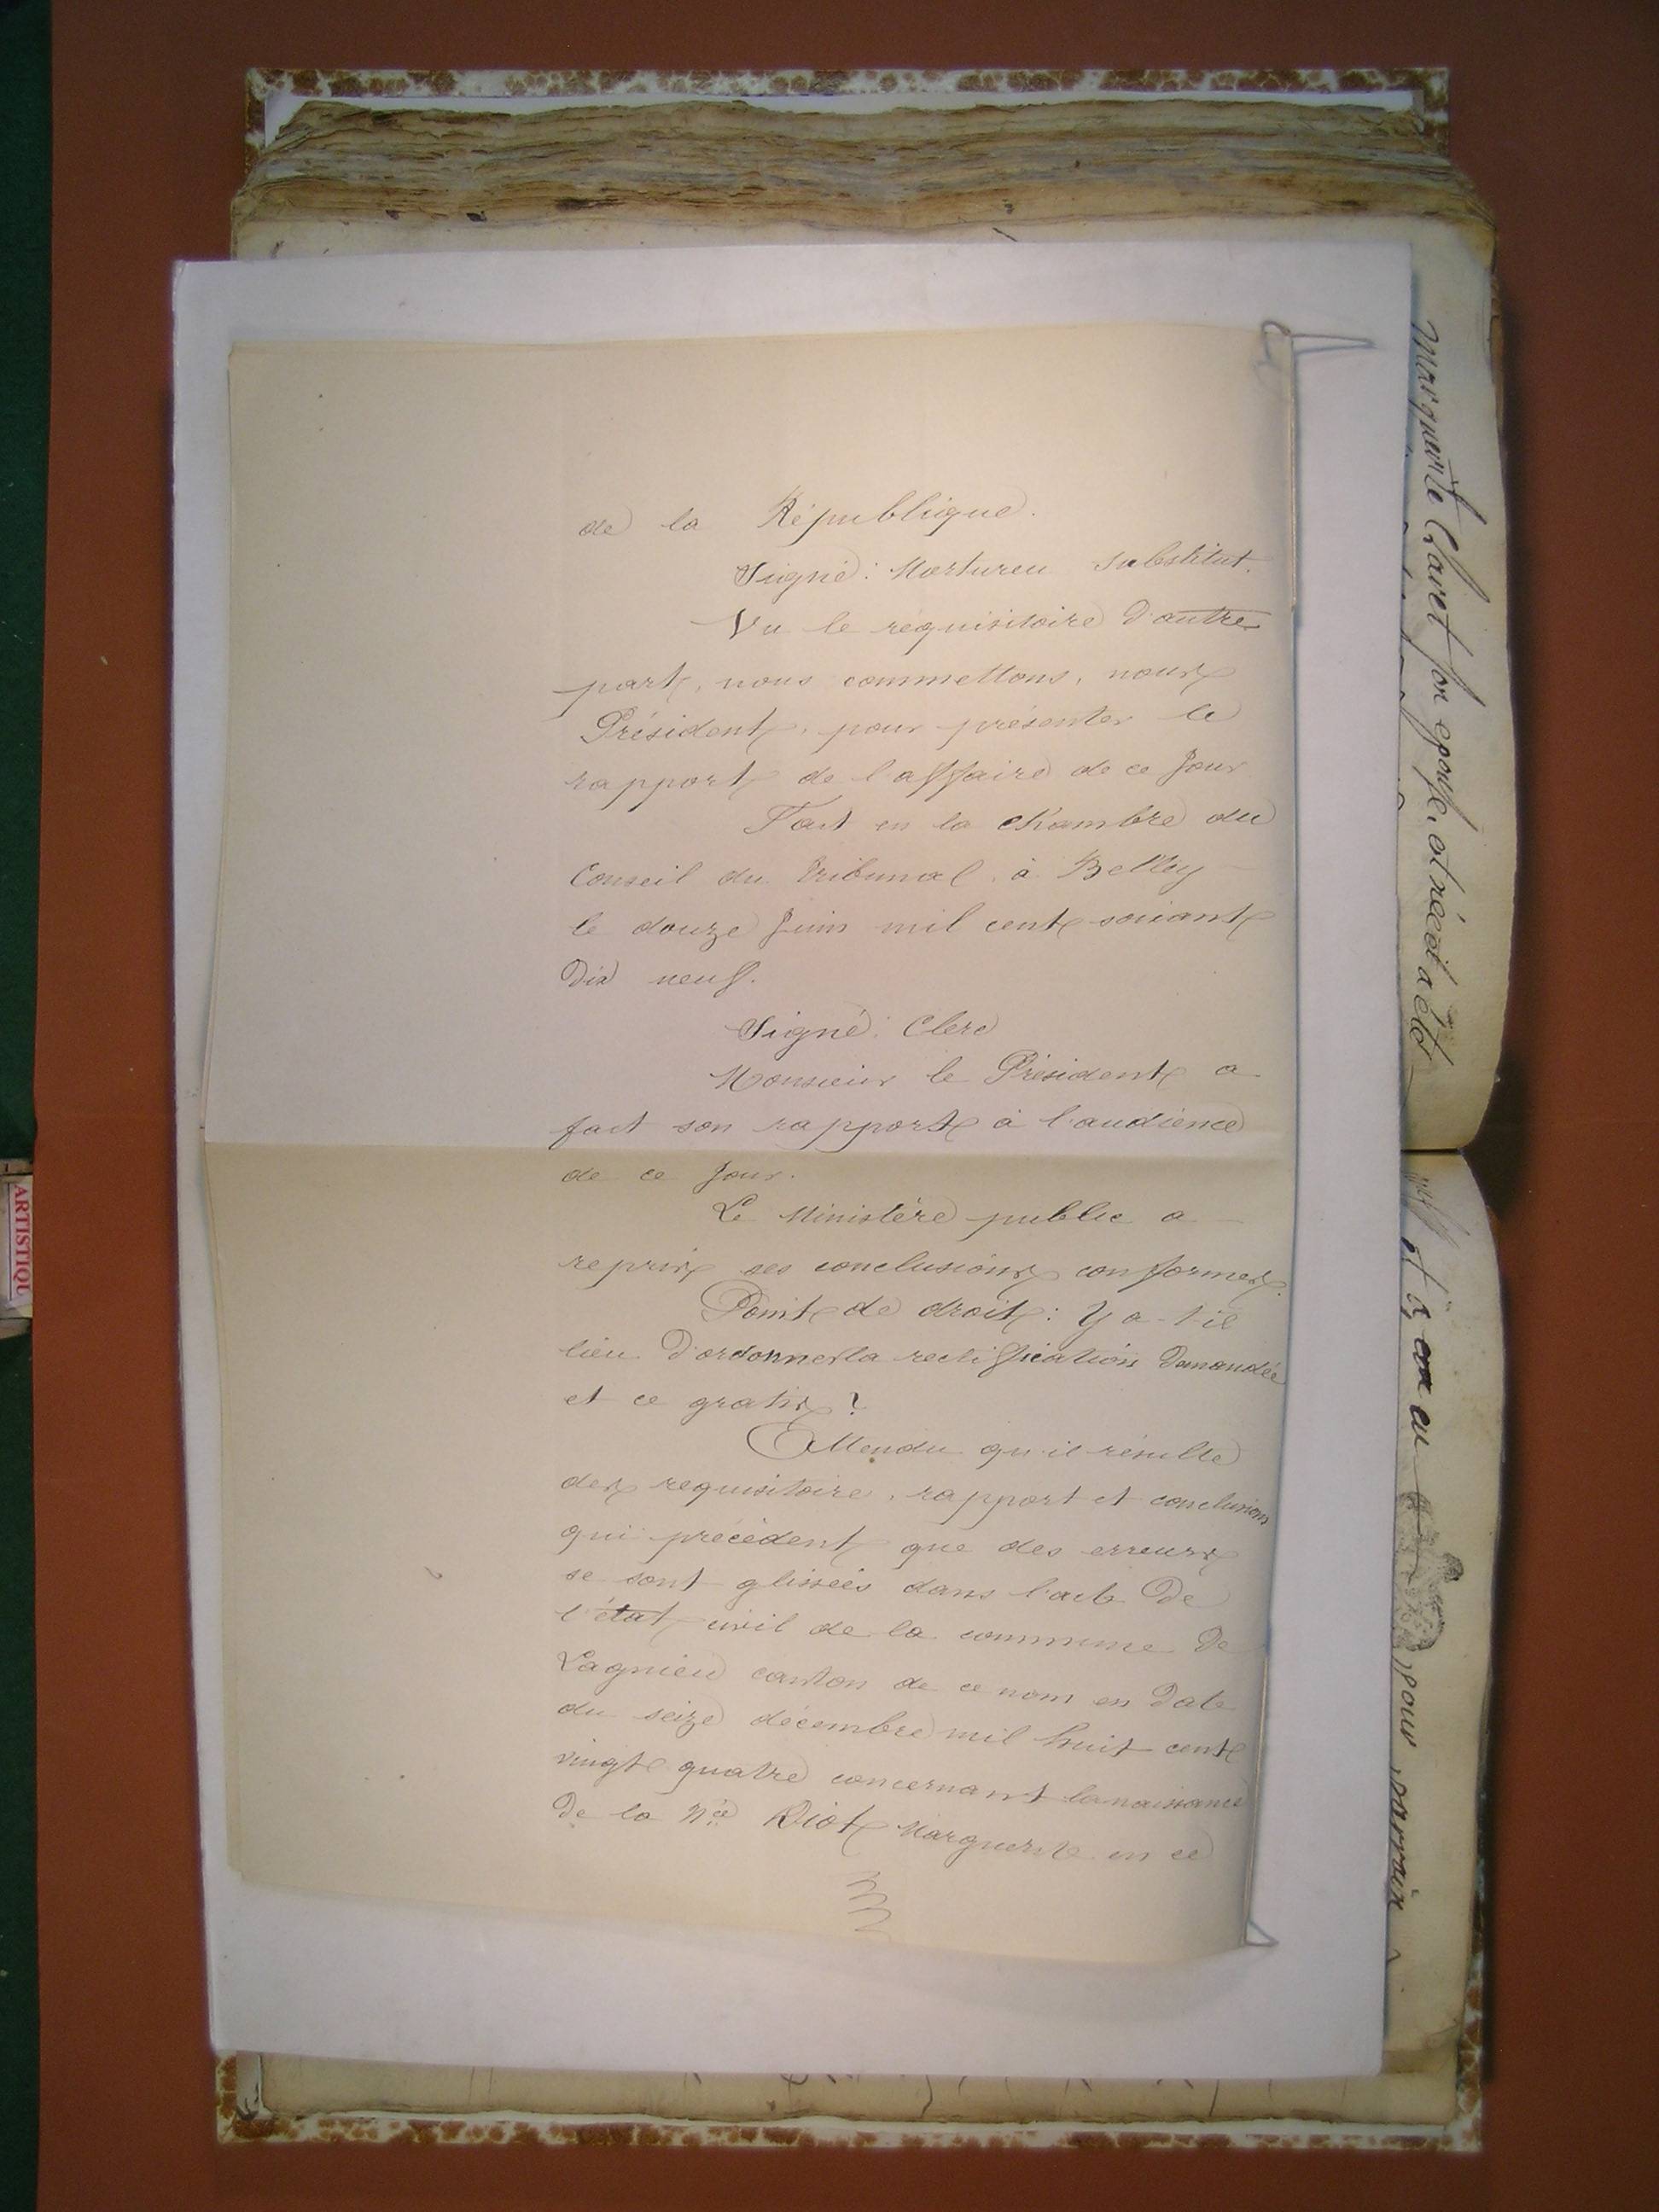 de la République.
Signé: Mortureu substitut.
Vu le requisitoire d'autre
part, nous commettons, nous
Président, pour présenter le
rapport de l'affaire de ce jour
Fait en la chambre du
Conseil du Tribunal, à Belley
le douze juin mil cent soixante
Dix neuf.
Signé: Clerc
Monsieur le Président a
fait son rapport à l'audience
de ce jour.
Le Ministère public a
repris ses conclusions conformes.
Point de droit: y a-t-il
lieu d'ordonner la rectification demandée
et ce gratis?
Attendu qu'il résulte
des requisitoire, rapport et conclusions
qui précèdent que des erreurs
se sont glissées dans l'acte De
l'état civil de la commune De
Lagnieu canton de ce nom en Date
du seize décembre mil huit cent
vingt quatre concernant la naissance
De la Née Riot Marguerite en ce
marguerite Claret son epouse, et réédi a été
et à, eu
pour parrain
ARTISTIQU